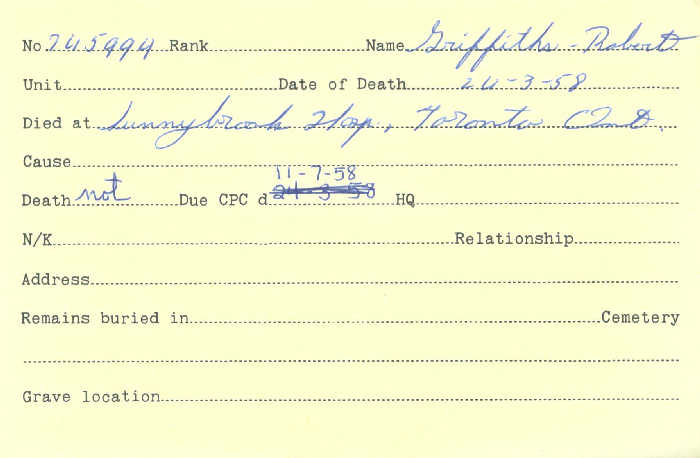 No. 745994 Rank Name Griffiths - Robert
Unit Date of Death 24-3-58
Died at Sunnybrook Hosp, Toronto Ont.
Cause
11-7-58
Death not Due CPC d 24-3-58 HQ
N/K Relationship
Address
Remains buried in Cemetery
Grave location